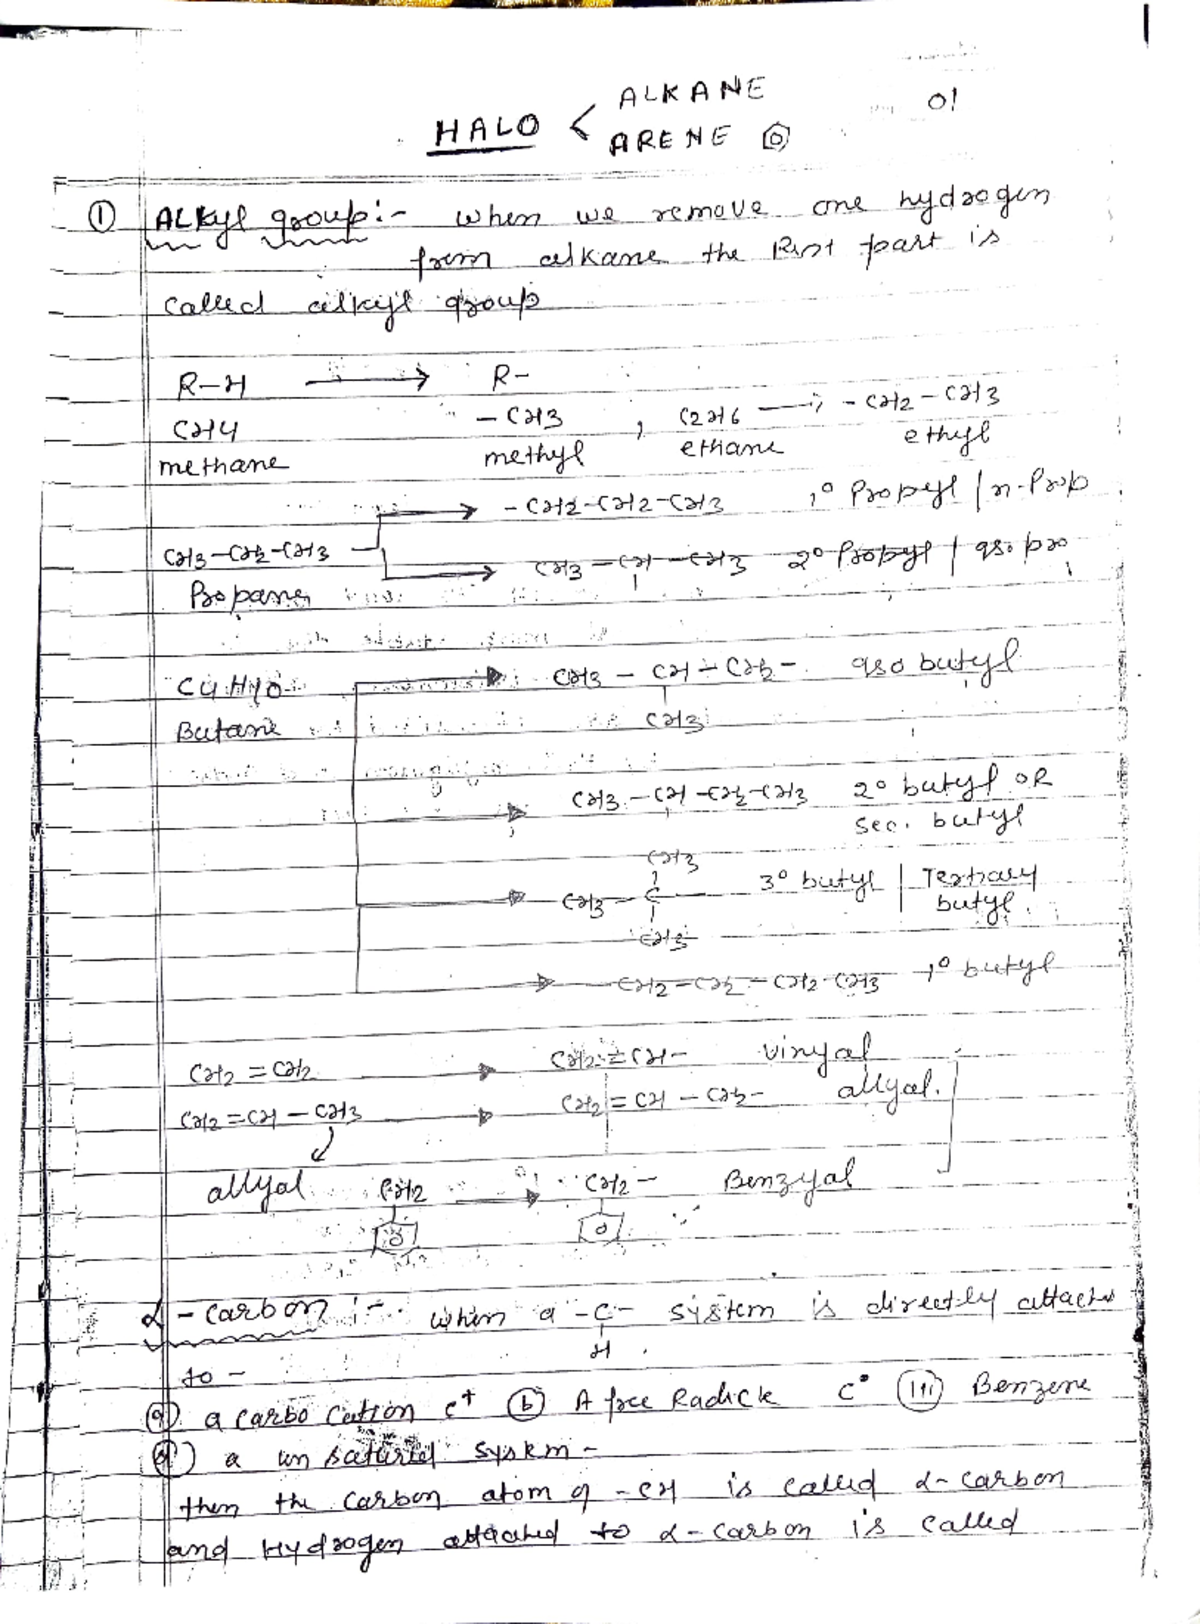 HALO < ALKANE
ARENE
01
① ALKyl group:- when we remove one hydrogen
from alkane the Rest part is
called alkyl group
R-H → R-
CH4 - CH3 , C2H6 → - CH2 - CH3
methane methyl ethane ethyl
→ - CH2-CH2-CH3 1° Propyl / n-Prop
CH3-CH2-CH3
→ CH3 - CH - CH3 2° Propyl / iso pro
Propane
C4H10 → CH3 - CH - CH2 - iso butyl
Butane CH3
→ CH3 - CH - CH2 - CH3 2° butyl OR
sec. butyl
CH3
→ CH3 - C - 3° butyl | Tertiary
butyl.
CH3
→ - CH2 - CH2 - CH2 - CH3 1° butyl
CH2 = CH2 → CH2 = CH - vinyal
CH2 = CH - CH3 → CH2 = CH - CH2 - allyal.
allyal CH2 → CH2 - Benzyal
α - carbon :- when a - C - system is directly attached
H
to -
a) a carbo cation C+ (b) A free Radick C• (iii) Benzene
a un saturted system -
then the carbon atom of - CH is called α- carbon
and Hydrogen attached to α- carbon is called